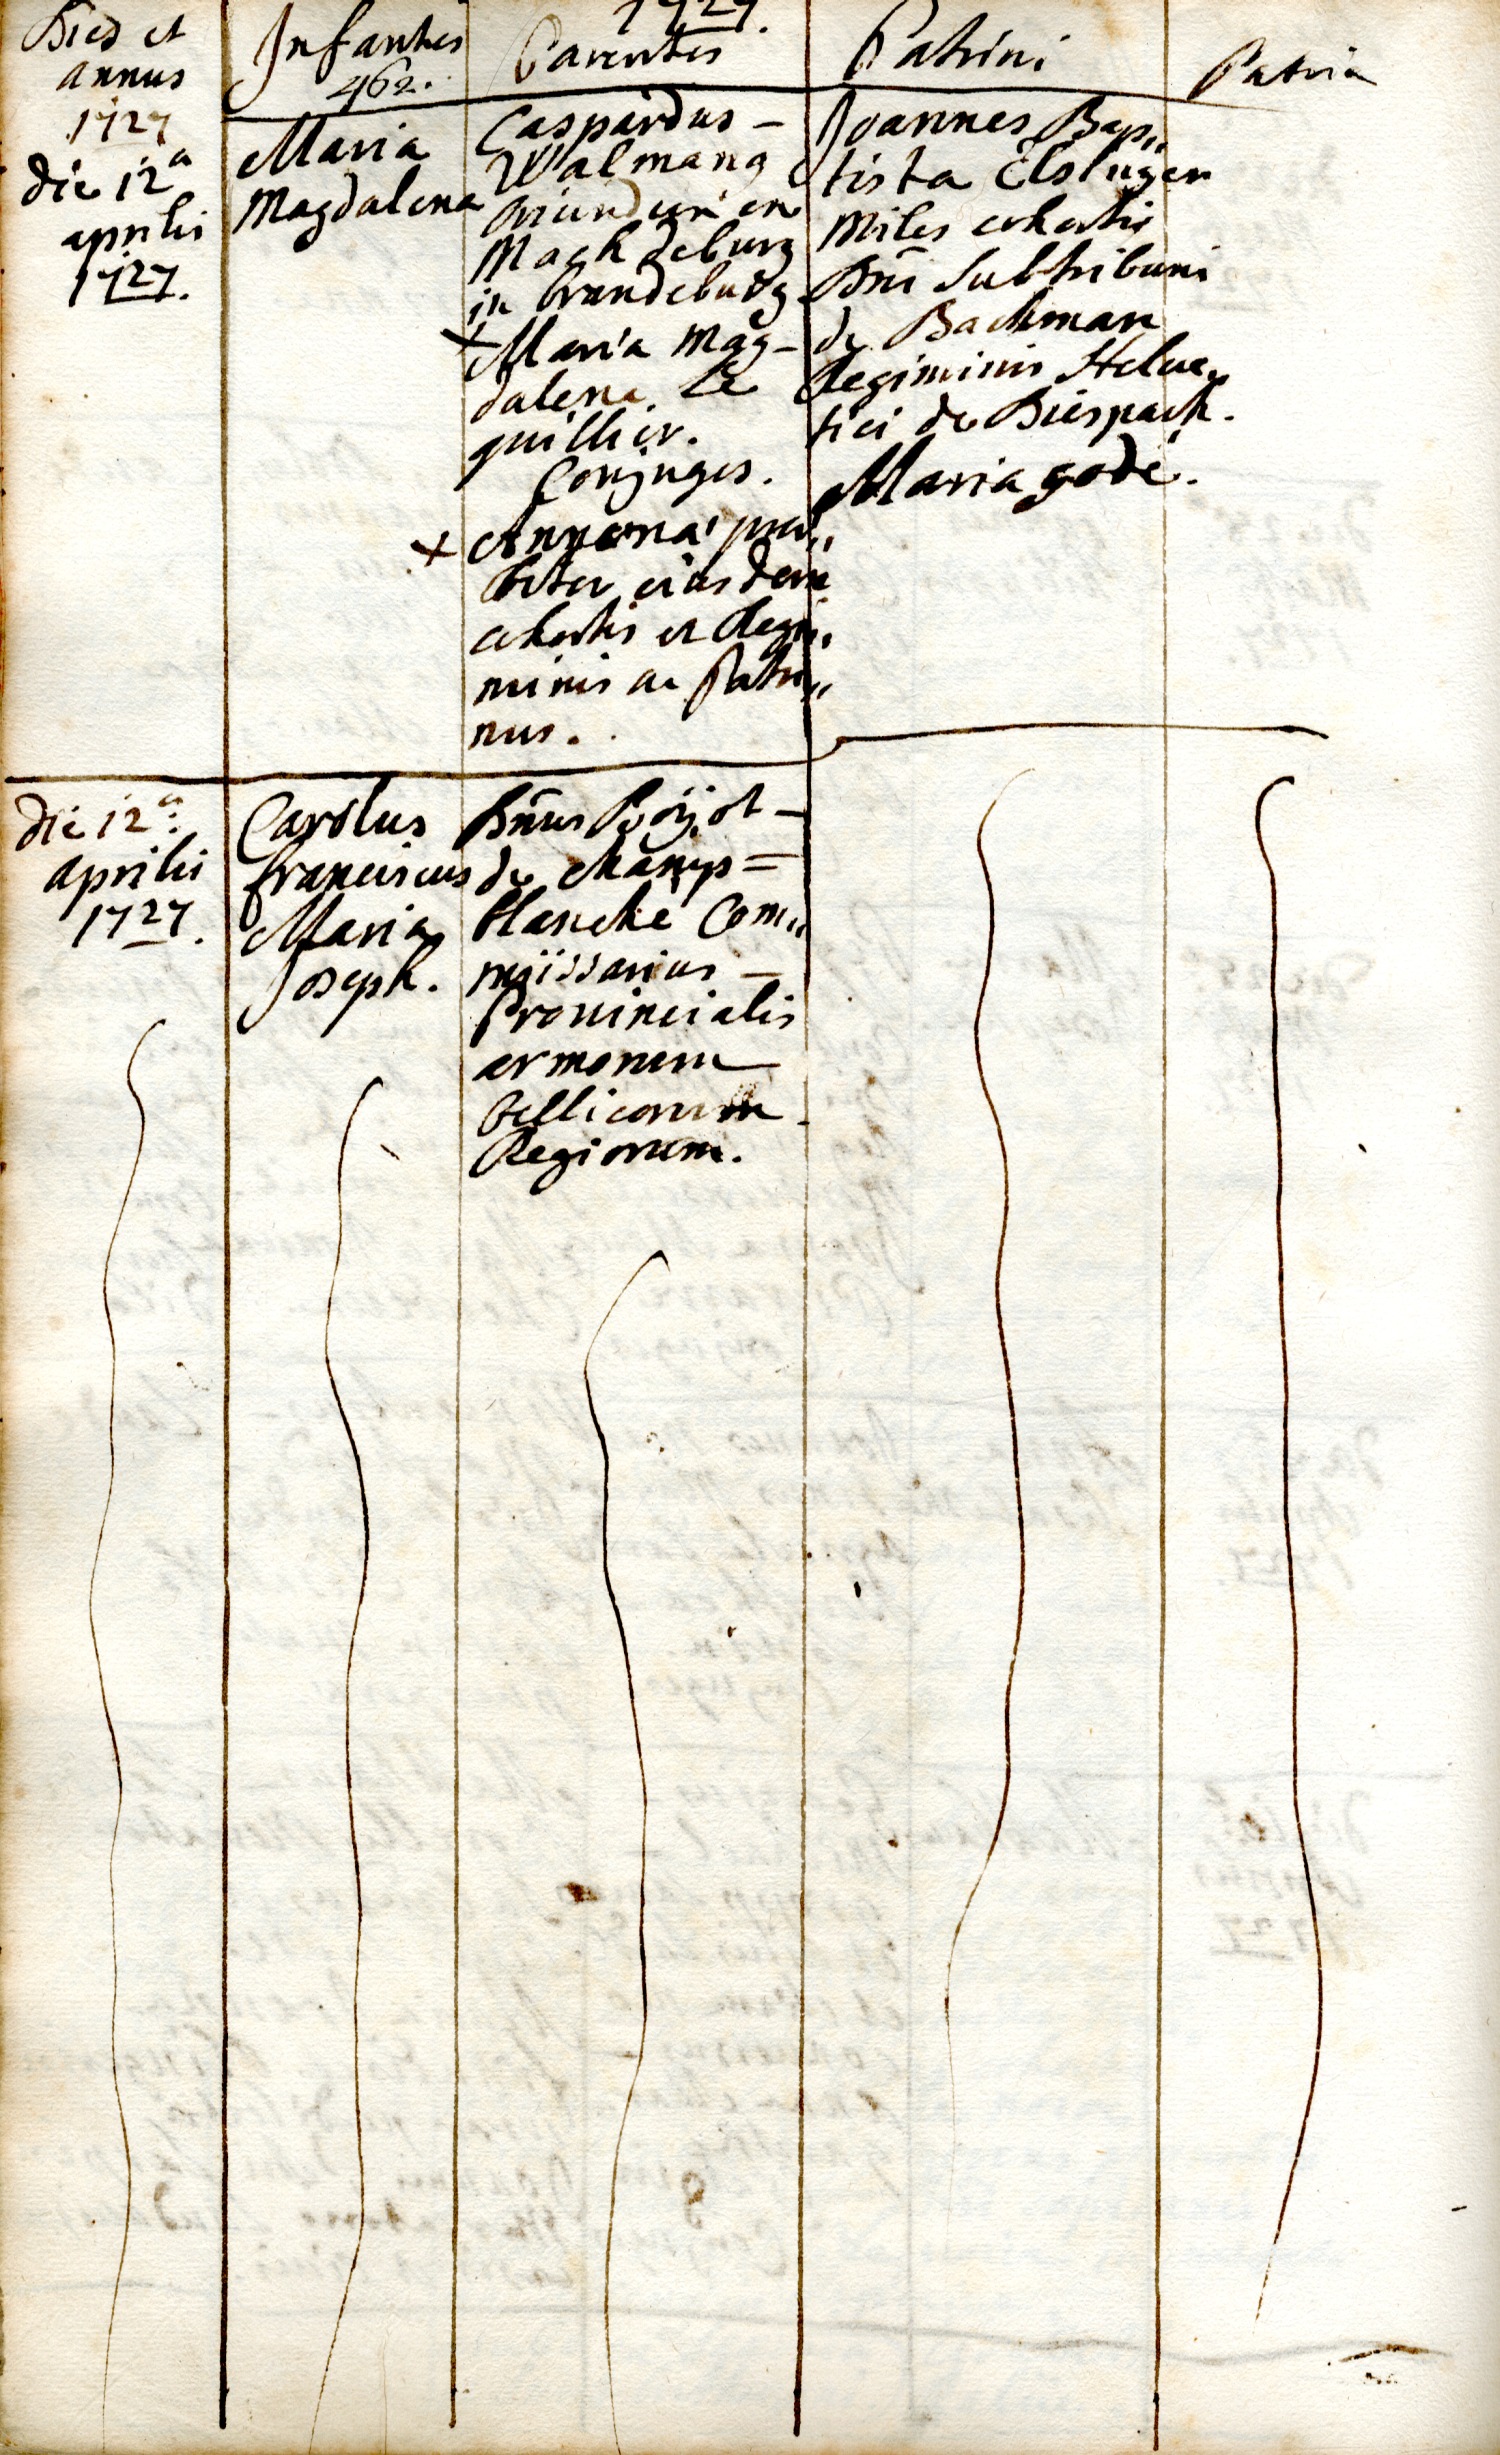 Dies et
annus
1727
Infantes
462.
1727.
Parentes
Patrini
Patria
die 12a
aprilis
1727.
Maria
Magdalena
Caspardus -
Walmang
oriundus ex
Mackdeburg
in brandeburg
+
Maria Mag-
dalena Le
quillier.
Conjuges.
+ Annona' prae,,
betur eiusdem
cohortis et Regi,,
minis ac Patri,,
nus.
Joannes Bap,,
tista Elslinger
Miles cohortis
Dni Subtribuni
de Backman
Regiminis Helve,,
tici de Diespack.
Maria godé.
die 12a
aprilis
1727.
Carolus
franciscus
Maria
Joseph.
Dnus Boÿot -
de champ=
blanché Com,,
miissarius -
Provincialis
armorum
bellicorum
Regiorum.